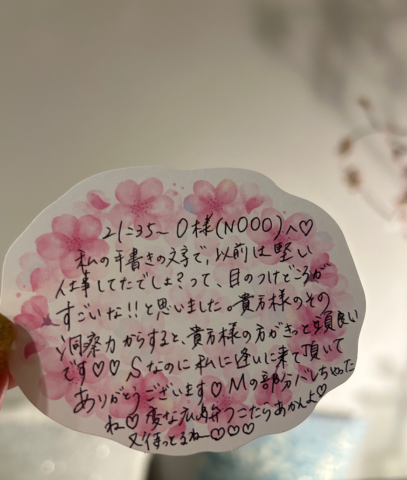 21:35~ O様(NOOO)へ♡
私の手書きの文字で、以前は堅い
仕事してたでしょ?って、目のつけどころが
すごいな!!と思いました。貴方様のその
洞察力からすると、貴方様の方がきっと頭良い
です♡♡ Sなのに私に逢いに来て頂いて
ありがとうございます♡Mの部分バレちゃった
ね♡変な広島弁つこたらあかんよ♡
又使ってるねー♡♡♡